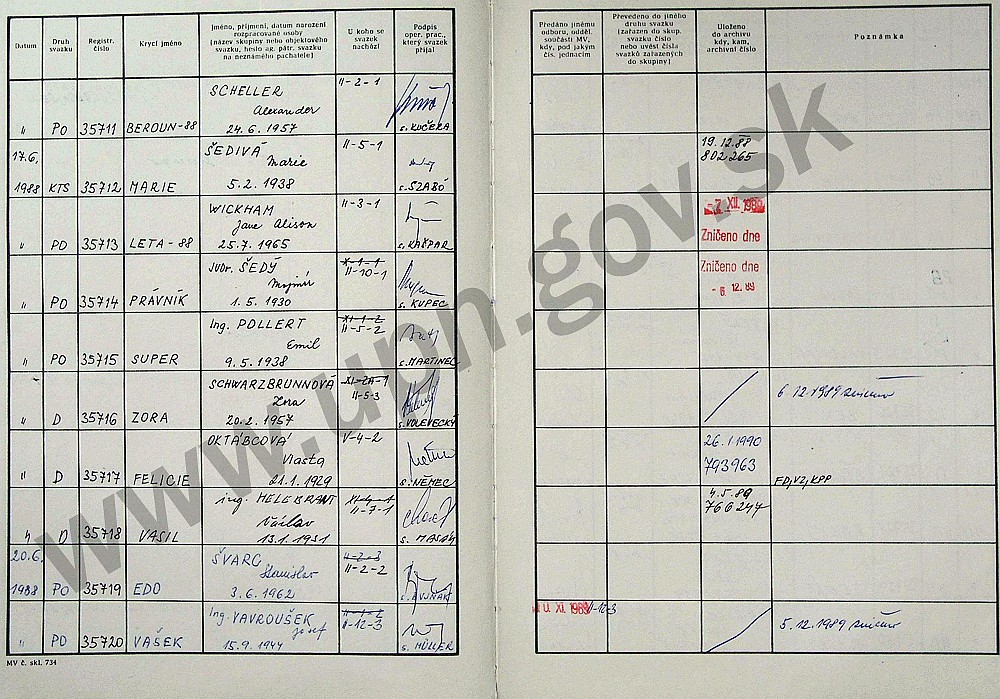 Datum
Druh svazku
Registr. číslo
Krycí jméno
Jméno, příjmení, datum narození
rozpracované osoby
(název skupiny nebo objektového
svazku, heslo ag. pátr. svazku
na neznámého pachatele)
U koho se
svazek
nachází
Podpis
oper. prac.,
který svazek
přijal
Předáno jinému
odboru, odděl.
součásti MV,
kdy, pod jakým
čís. jednacím
Převedeno do jiného
druhu svazku
(zařazen do skup.
svazku číslo
nebo uvést čísla
svazků zařazených
do skupiny)
Uloženo
do archivu
kdy, kam,
archivní číslo
Poznámka
SCHELLER II-2-1
Alexander
" PO 35711 BEROUN-88 24.6.1957 s. KUČERA
17.6. ŠEDIVÁ II-5-1 19.12.88
Marie 802265
1988 KTS 35712 MARIE 5.2.1938 s. SZABÓ
WICKHAM II-3-1 - 7. XII. 1989
Jane Alison Zničeno dne
" PO 35713 LETA-88 25.7.1965 s. KAŠPAR
JUDr. ŠEDÝ X-1-1 Zničeno dne
Mojmír II-10-1 - 6. 12. 89
" PO 35714 PRÁVNÍK 1.5.1930 s. KUPEC
Ing. POLLERT XI-1-2
Emil II-5-2
" PO 35715 SUPER 9.5.1938 s. MARTINEC
SCHWARZBRUNNOVÁ XI-2A-1 6.12.1989 zničeno
Zora II-5-3
" D 35716 ZORA 20.2.1957 s. VOLEVECKÝ
OKTÁBCOVÁ V-4-2 26.1.1990
Vlasta 793963
" D 35717 FELICIE 21.1.1929 s. NĚMEC FD, VZ, KPP
ing. HELEBRANT 4.5.89
Václav II-7-1 766244
" D 35718 VASIL 13.1.1931
20.6. ŠVARC II-2-3
Stanislav II-2-2
1988 PO 35719 EDO 3.6.1962
Ing. VAVROUŠEK XI. 1989 II-12-3
Josef II-12-3
" PO 35720 VAŠEK 15.9.1944 s. MÜLLER 5.12.1989 zničeno
MV č. skl. 734
www.upn.gov.sk